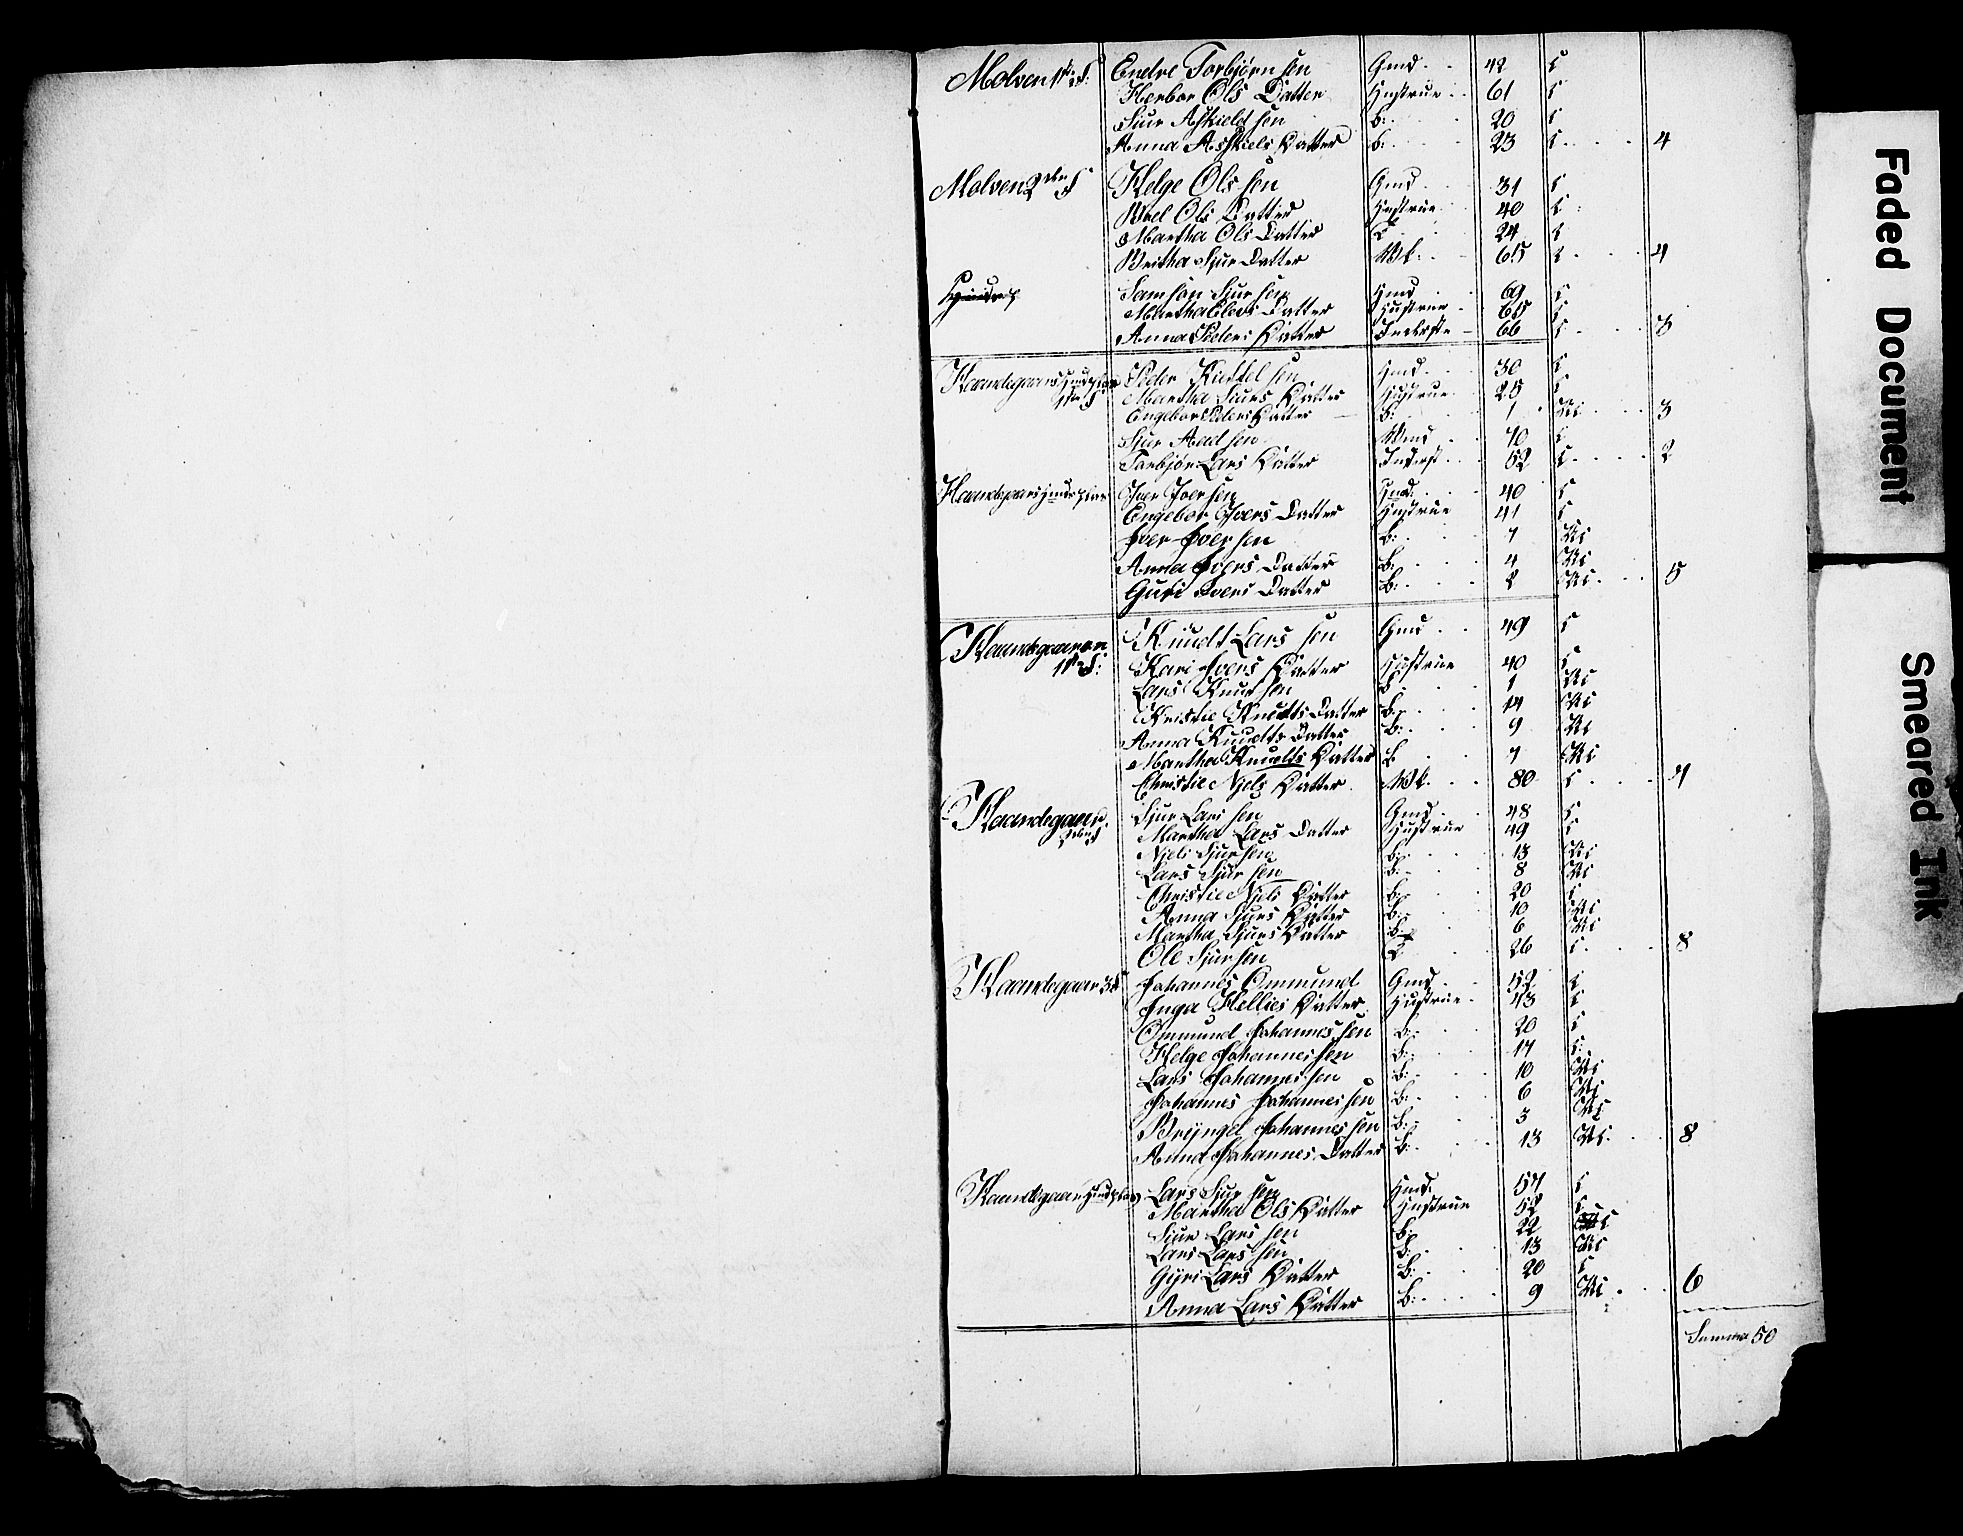 Molven 1ste S: Endre Torbjørn sen Gmd . . 42 C
Herbor Ols Datter Hustrue . . 61 C
Siur Askield sen b: . . . 20 C
Anna Askiels Datter b: . . . 23 C . . . . 4
Molven 2den S Helge Ols sen Gmd . . 31 C
Ols Datter Hustrue . . 40 C
Martha Ols Datter 24 C
Britha Sjur Datter 65 C . . . . 4
Samson Sjur sen Hmd 69 C
Martha Datter Hustrue . 65 C
Anna Peders Datter Inderste 66 C . . . . 3
Haandegaards Huusplas 1ste S Peder sen Hmd . . 30 C
Martha Siurs Datter Hustrue 25 C
Engebor Peders Datter b: . . . 1 Uc . . . . 3
Sjur sen 70 C
Torbjør Lars Datter Inderst . . 52 C . . . . 2
Haandegaars huusplas Iver Iver sen Hmd . . 40 C
Engebor Ivers Datter Hustrue 41 C
Iver Iver sen b: . . . 7 Uc
Anna Ivers Datter b: . . . 4 Uc
Guri Ivers Datter b: . . . 2 Uc . . . . 5
Haandegaard 1ste S: Knudt Lars sen Gmd . . 49 C
Kari Ivers Datter Hustrue 40 C
Lars Knud sen b: . . . 1 Uc
Kristie Knudts Datter b: . . . 14 Uc
Anna Knudts Datter b: . . . 9 Uc
Martha Knudts Datter b: . . . 7 Uc
Christie Njels Datter 80 C . . . . 7
Haandegaard 2den S Sjur Lars sen Gmd . . 48 C
Martha Lars Datter Hustrue 49 C
Njels Sjur sen b: . . . 13 Uc
Lars Sjur sen b: . . . 8 Uc
Christie Njels Datter b: . . . 20 C
Anna Sjurs Datter b: . . . 10 Uc
Martha Sjurs Datter b: . . . 6 Uc
Ole Sjur sen 26 C . . . . 8
Haandegaar 3d S Johannes Ommund Gmd . . 52 C
Inga Hellies Datter Hustrue . 43 C
Ommund Johannes sen b: . . . 20 C
Helge Johannes sen b: . . . 17 C
Lars Johannes sen b: . . . 10 Uc
Johannes Johannes sen b: . . . 6 Uc
Brÿngel Johannes sen b: . . . 3 Uc
Anna Johannes Datter b: . . . 13 Uc . . . . 8
Haandegaar Huusplas Lars Sjur sen Hmd. 57 C
Martha Ols Datter Hustrue 52 C
Siur Lars sen b: 22 C
Lars Lars sen b: . . . 13 Uc
Gÿri Lars Datter b: . . . 20 C
Anna Lars Datter b: . . . 9 Uc . . . . 6
Summa 50
Faded Document
Smeared Ink